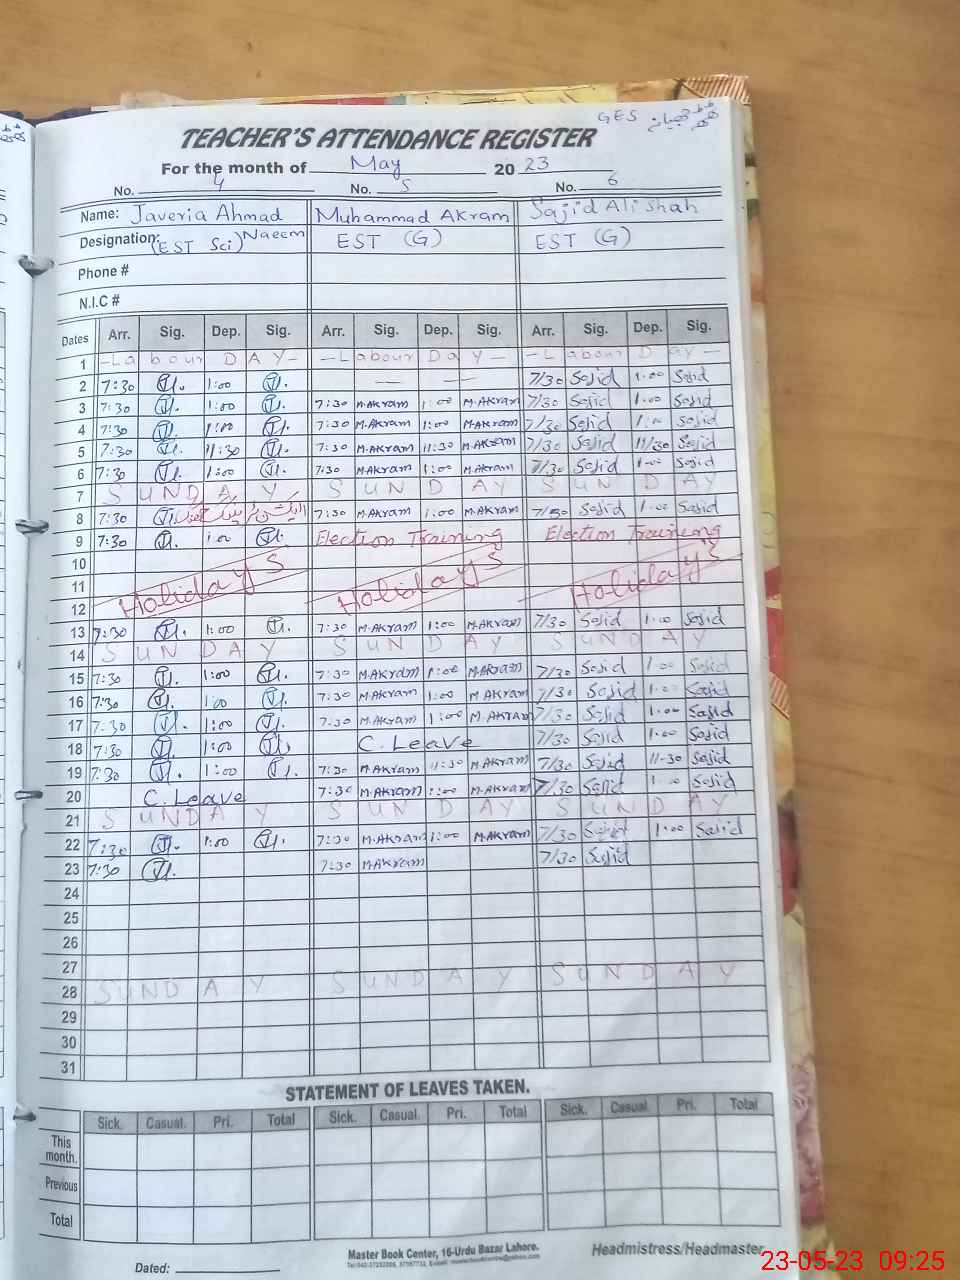 GES
TEACHER'S ATTENDANCE REGISTER
For the month of May 2023
No. 4 No. 5 No. 6
Name: Javeria Ahmad Muhammad Akram Sajid Ali shah
Designation: (EST Sci) Naeem EST (G) EST (G)
Phone #
N.I.C #
Dates Arr. Sig. Dep. Sig. Arr. Sig. Dep. Sig. Arr. Sig. Dep. Sig.
1 -Labour DAY- -Labour Day- -Labour Day-
2 7:30 1:00 — — 7/30 Sajid 1:00 Sajid
3 7:30 1:00 7:30 M.Akram 1:00 M.Akram 7/30 Sajid 1:00 Sajid
4 7:30 1:00 7:30 M.Akram 1:00 M.Akram 7/30 Sajid 1:00 Sajid
5 7:30 11:30 7:30 M.Akram 11:30 M.Akram 7/30 Sajid 11/30 Sajid
6 7:30 1:00 7:30 M.Akram 1:00 M.Akram 7/30 Sajid 1:00 Sajid
7 SUNDAY SUNDAY SUNDAY
8 7:30 7:30 M.Akram 1:00 M.Akram 7/30 Sajid 1:00 Sajid
9 7:30 1:00 Election Training Election Training
10
11 Holidays Holidays Holidays
12
13 7:30 1:00 7:30 M.Akram 1:00 M.Akram 7/30 Sajid 1:00 Sajid
14 SUNDAY SUNDAY SUNDAY
15 7:30 1:00 7:30 M.Akram 1:00 M.Akram 7/30 Sajid 1:00 Sajid
16 7:30 1:00 7:30 M.Akram 1:00 M.Akram 7/30 Sajid 1:00 Sajid
17 7:30 1:00 7:30 M.Akram 1:00 M.Akram 7/30 Sajid 1:00 Sajid
18 7:30 1:00 C.Leave 7/30 Sajid 1:00 Sajid
19 7:30 1:00 7:30 M.Akram 11:30 M.Akram 7/30 Sajid 11-30 Sajid
20 C.Leave 7:30 M.Akram 1:00 M.Akram 7/30 Sajid 1:00 Sajid
21 SUNDAY SUNDAY SUNDAY
22 7:30 1:00 7:30 M.Akram 1:00 M.Akram 7/30 Sajid 1:00 Sajid
23 7:30 7:30 M.Akram 7/30 Sajid
24
25
26
27
28 SUNDAY SUNDAY SUNDAY
29
30
31
STATEMENT OF LEAVES TAKEN.
Sick. Casual. Pri. Total Sick. Casual. Pri. Total Sick. Casual. Pri. Total
This month.
Previous
Total
Master Book Center, 16-Urdu Bazar Lahore.
Headmistress/Headmaster
Dated:
23-05-23 09:25